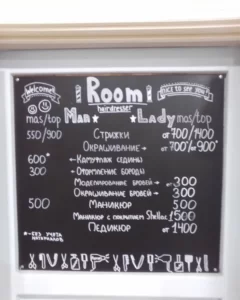 Welcome!
!! Room!
NICE TO SEE YOU
hairdresser
mas/top Man Lady mas/top
550/900 Стрижки от 700/1400
Окрашивание → от 700/от 900*
600* ← Камуфляж седины
300 ← Оформление бороды
Моделирование бровей → 300
Окрашивание бровей → 300
500 Маникюр 500
Маникюр с покрытием Shellac 1500
Педикюр от 1400
*-БЕЗ УЧЕТА
МАТЕРИАЛОВ